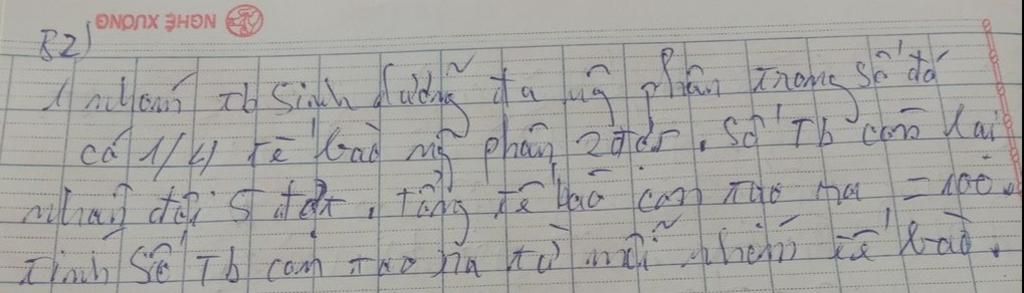 NGHỆ XƯƠNG
B2)
1 nhóm tb sinh dưỡng đã ng phân trong số đó
có 1/4 tế bào ng phân 2 đợt. Số Tb còn lại
nhân đôi 5 đợt, tổng tế bào con tạo ra = 100.
Tính Số Tb con tạo ra từ mỗi nhóm tế bào.